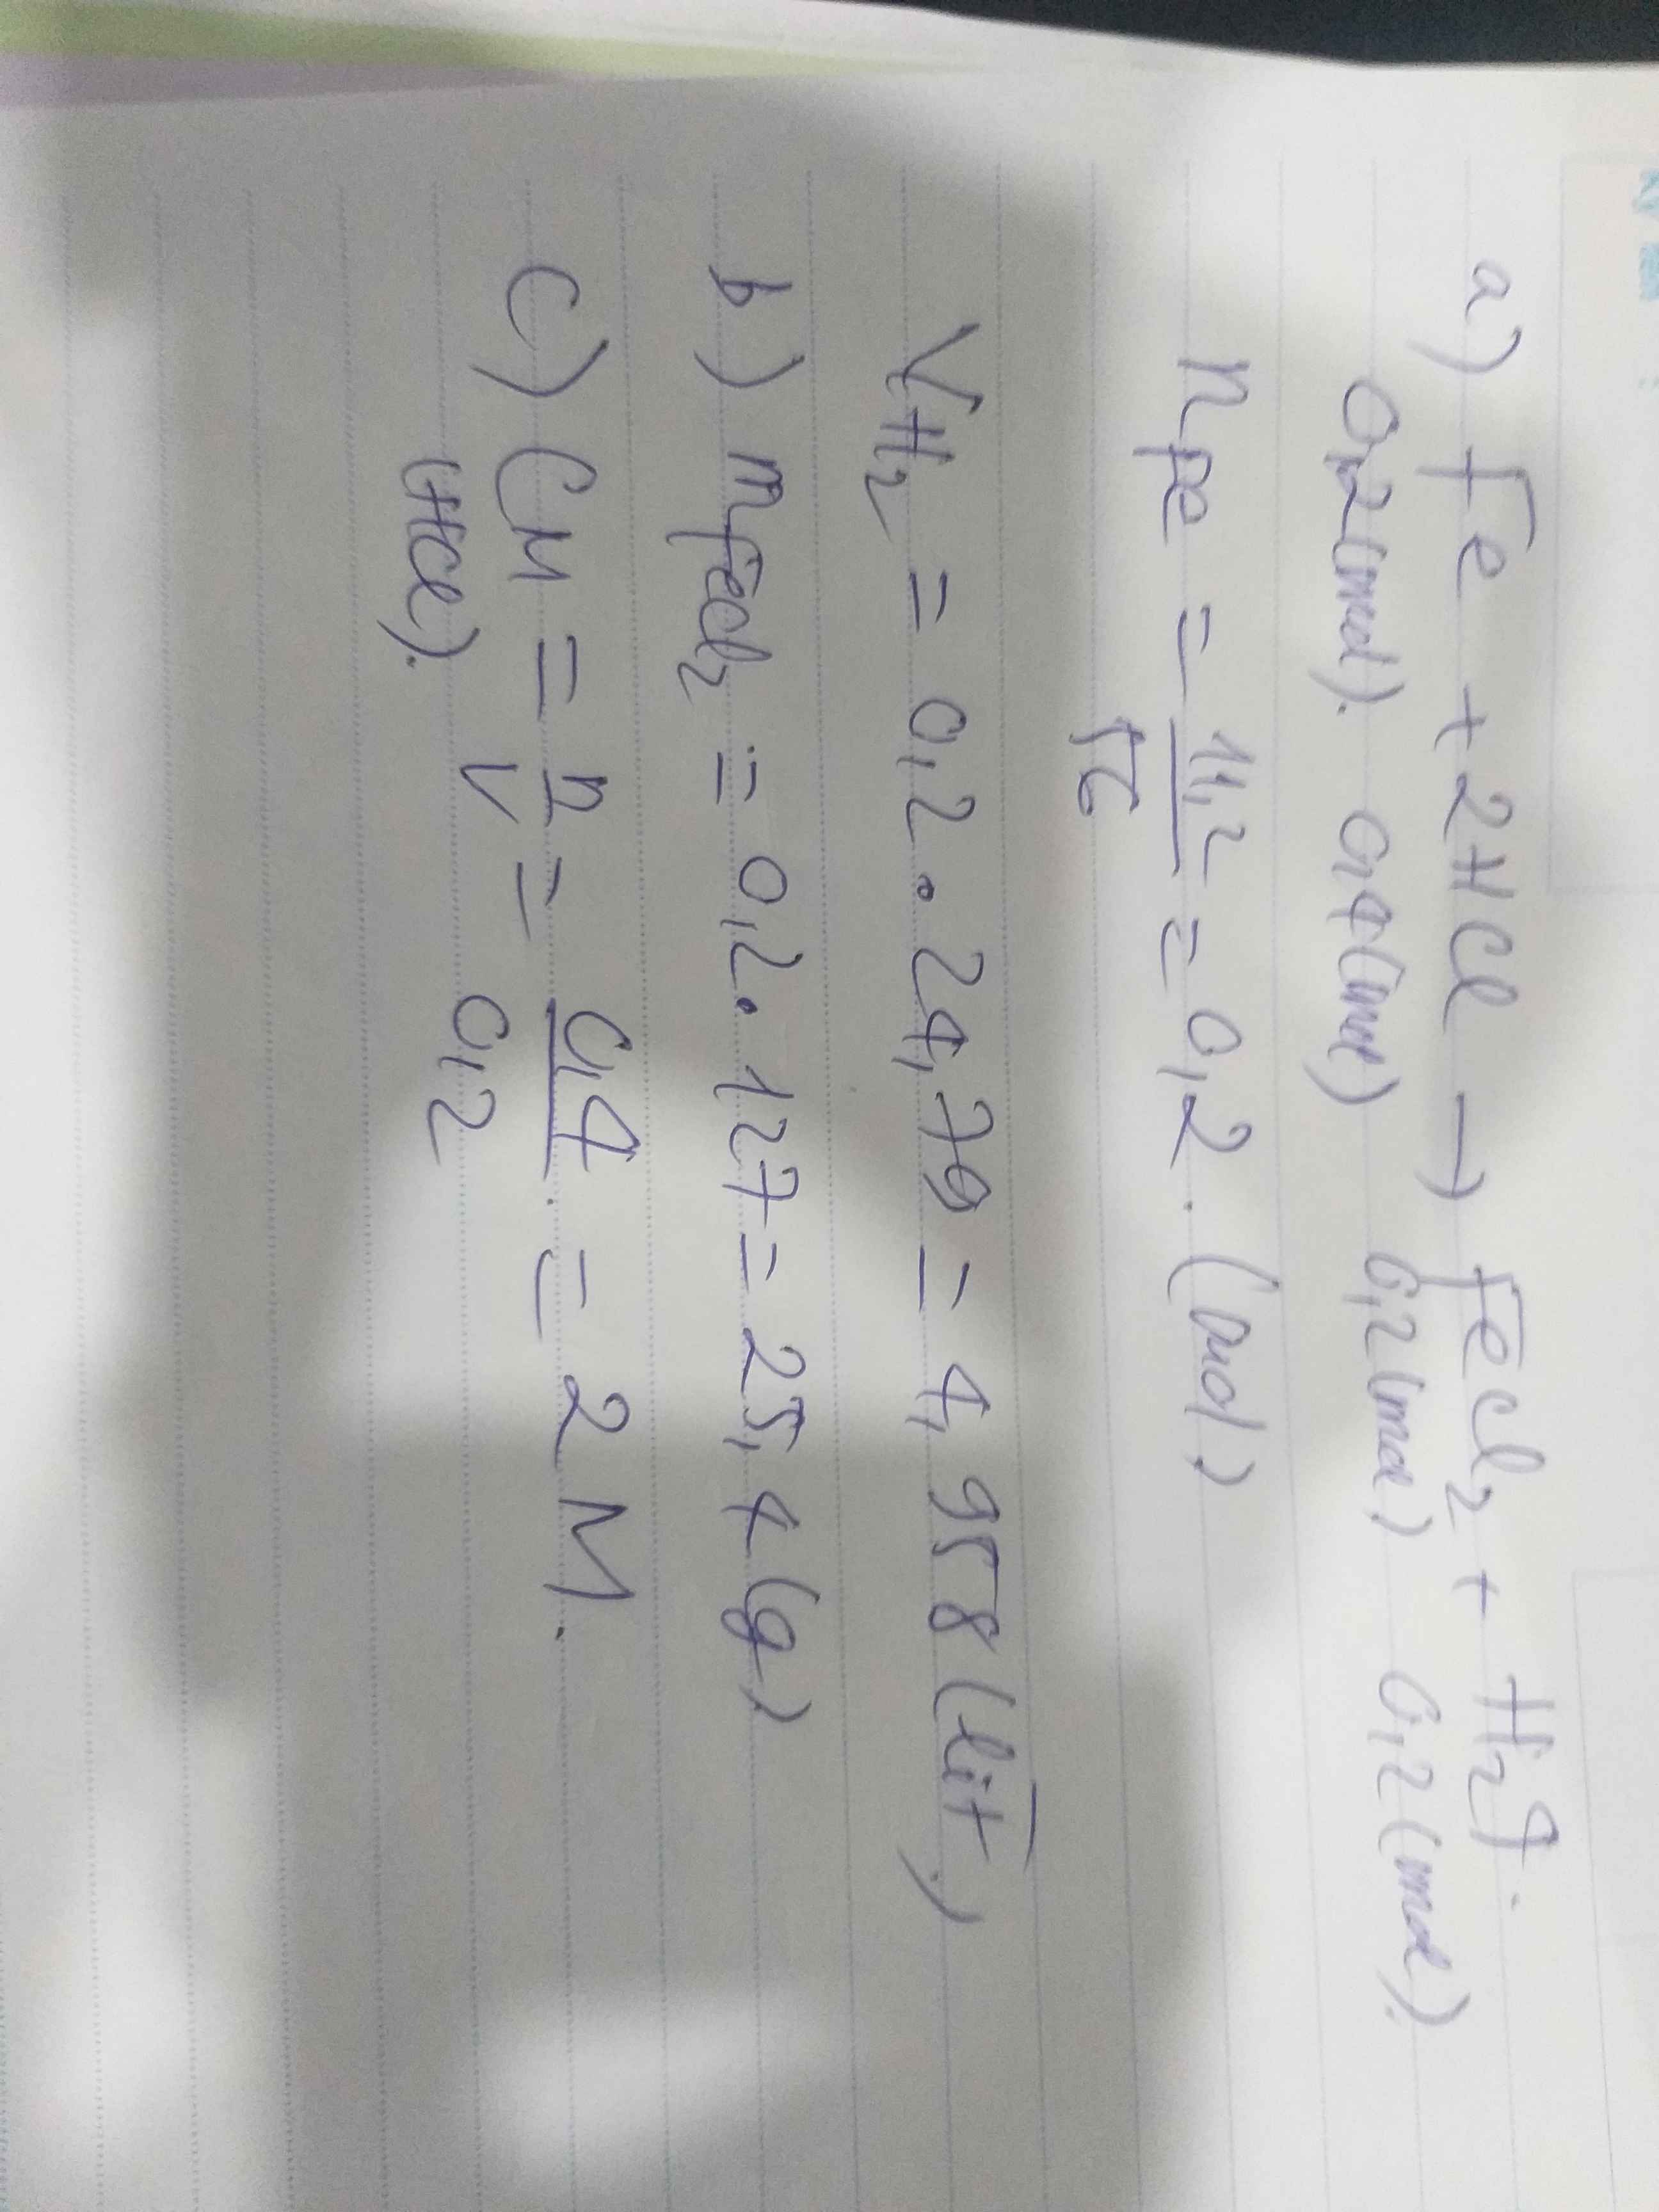 a) Fe + 2HCl → FeCl₂ + H₂↑.
0,2(mol). 0,4(mol) 0,2(mol) 0,2(mol).
n Fe = 11,2/56 = 0,2. (mol)
V H₂ = 0,2 . 24,79 = 4,958 (lít)
b) m FeCl₂ = 0,2 . 127 = 25,4 (g)
c) CM = n/V = 0,4/0,2 = 2 M.
(HCl).